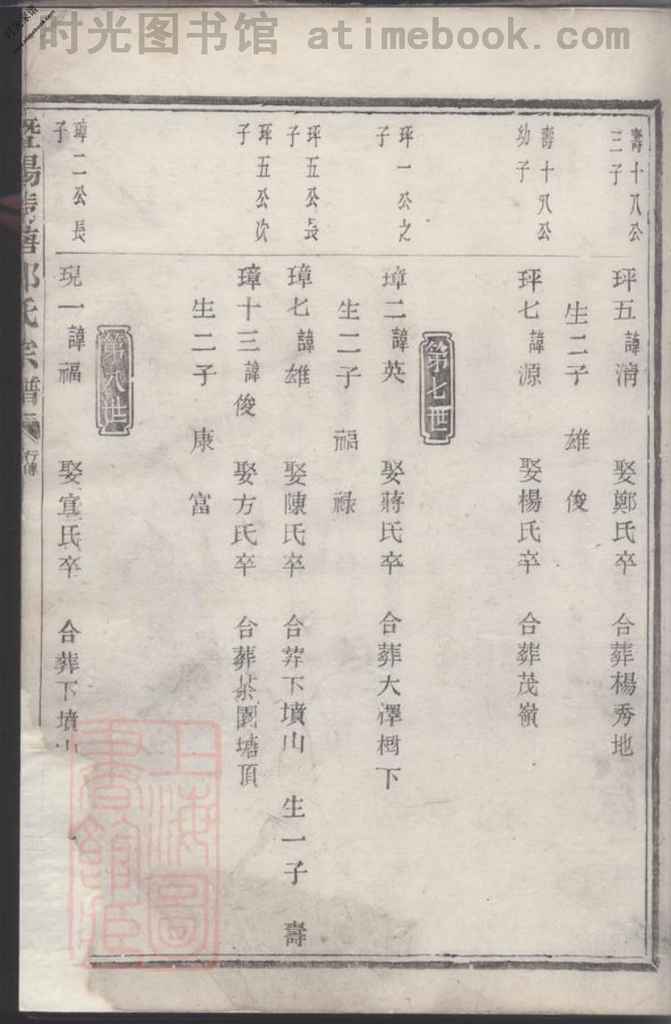 时光图书馆 atimebook.com
壽十八公三子
玶五 諱淸 娶鄭氏卒 合葬楊秀地
生二子 雄 俊
壽十八公幼子
玶七 諱源 娶楊氏卒 合葬茂嶺
第七世
玶一公之子
璋二 諱英 娶蔣氏卒 合葬大澤 下
生二子 福 祿
玶五公長子
璋七 諱雄 娶陳氏卒 合葬下墳山 生一子 壽
玶五公次子
璋十三 諱俊 娶方氏卒 合葬茶園塘頂
生二子 康 富
第八世
璋二公長子
現一 諱福 娶宣氏卒 合葬下墳山
暨陽 氏宗譜 行傳
上海圖書館藏